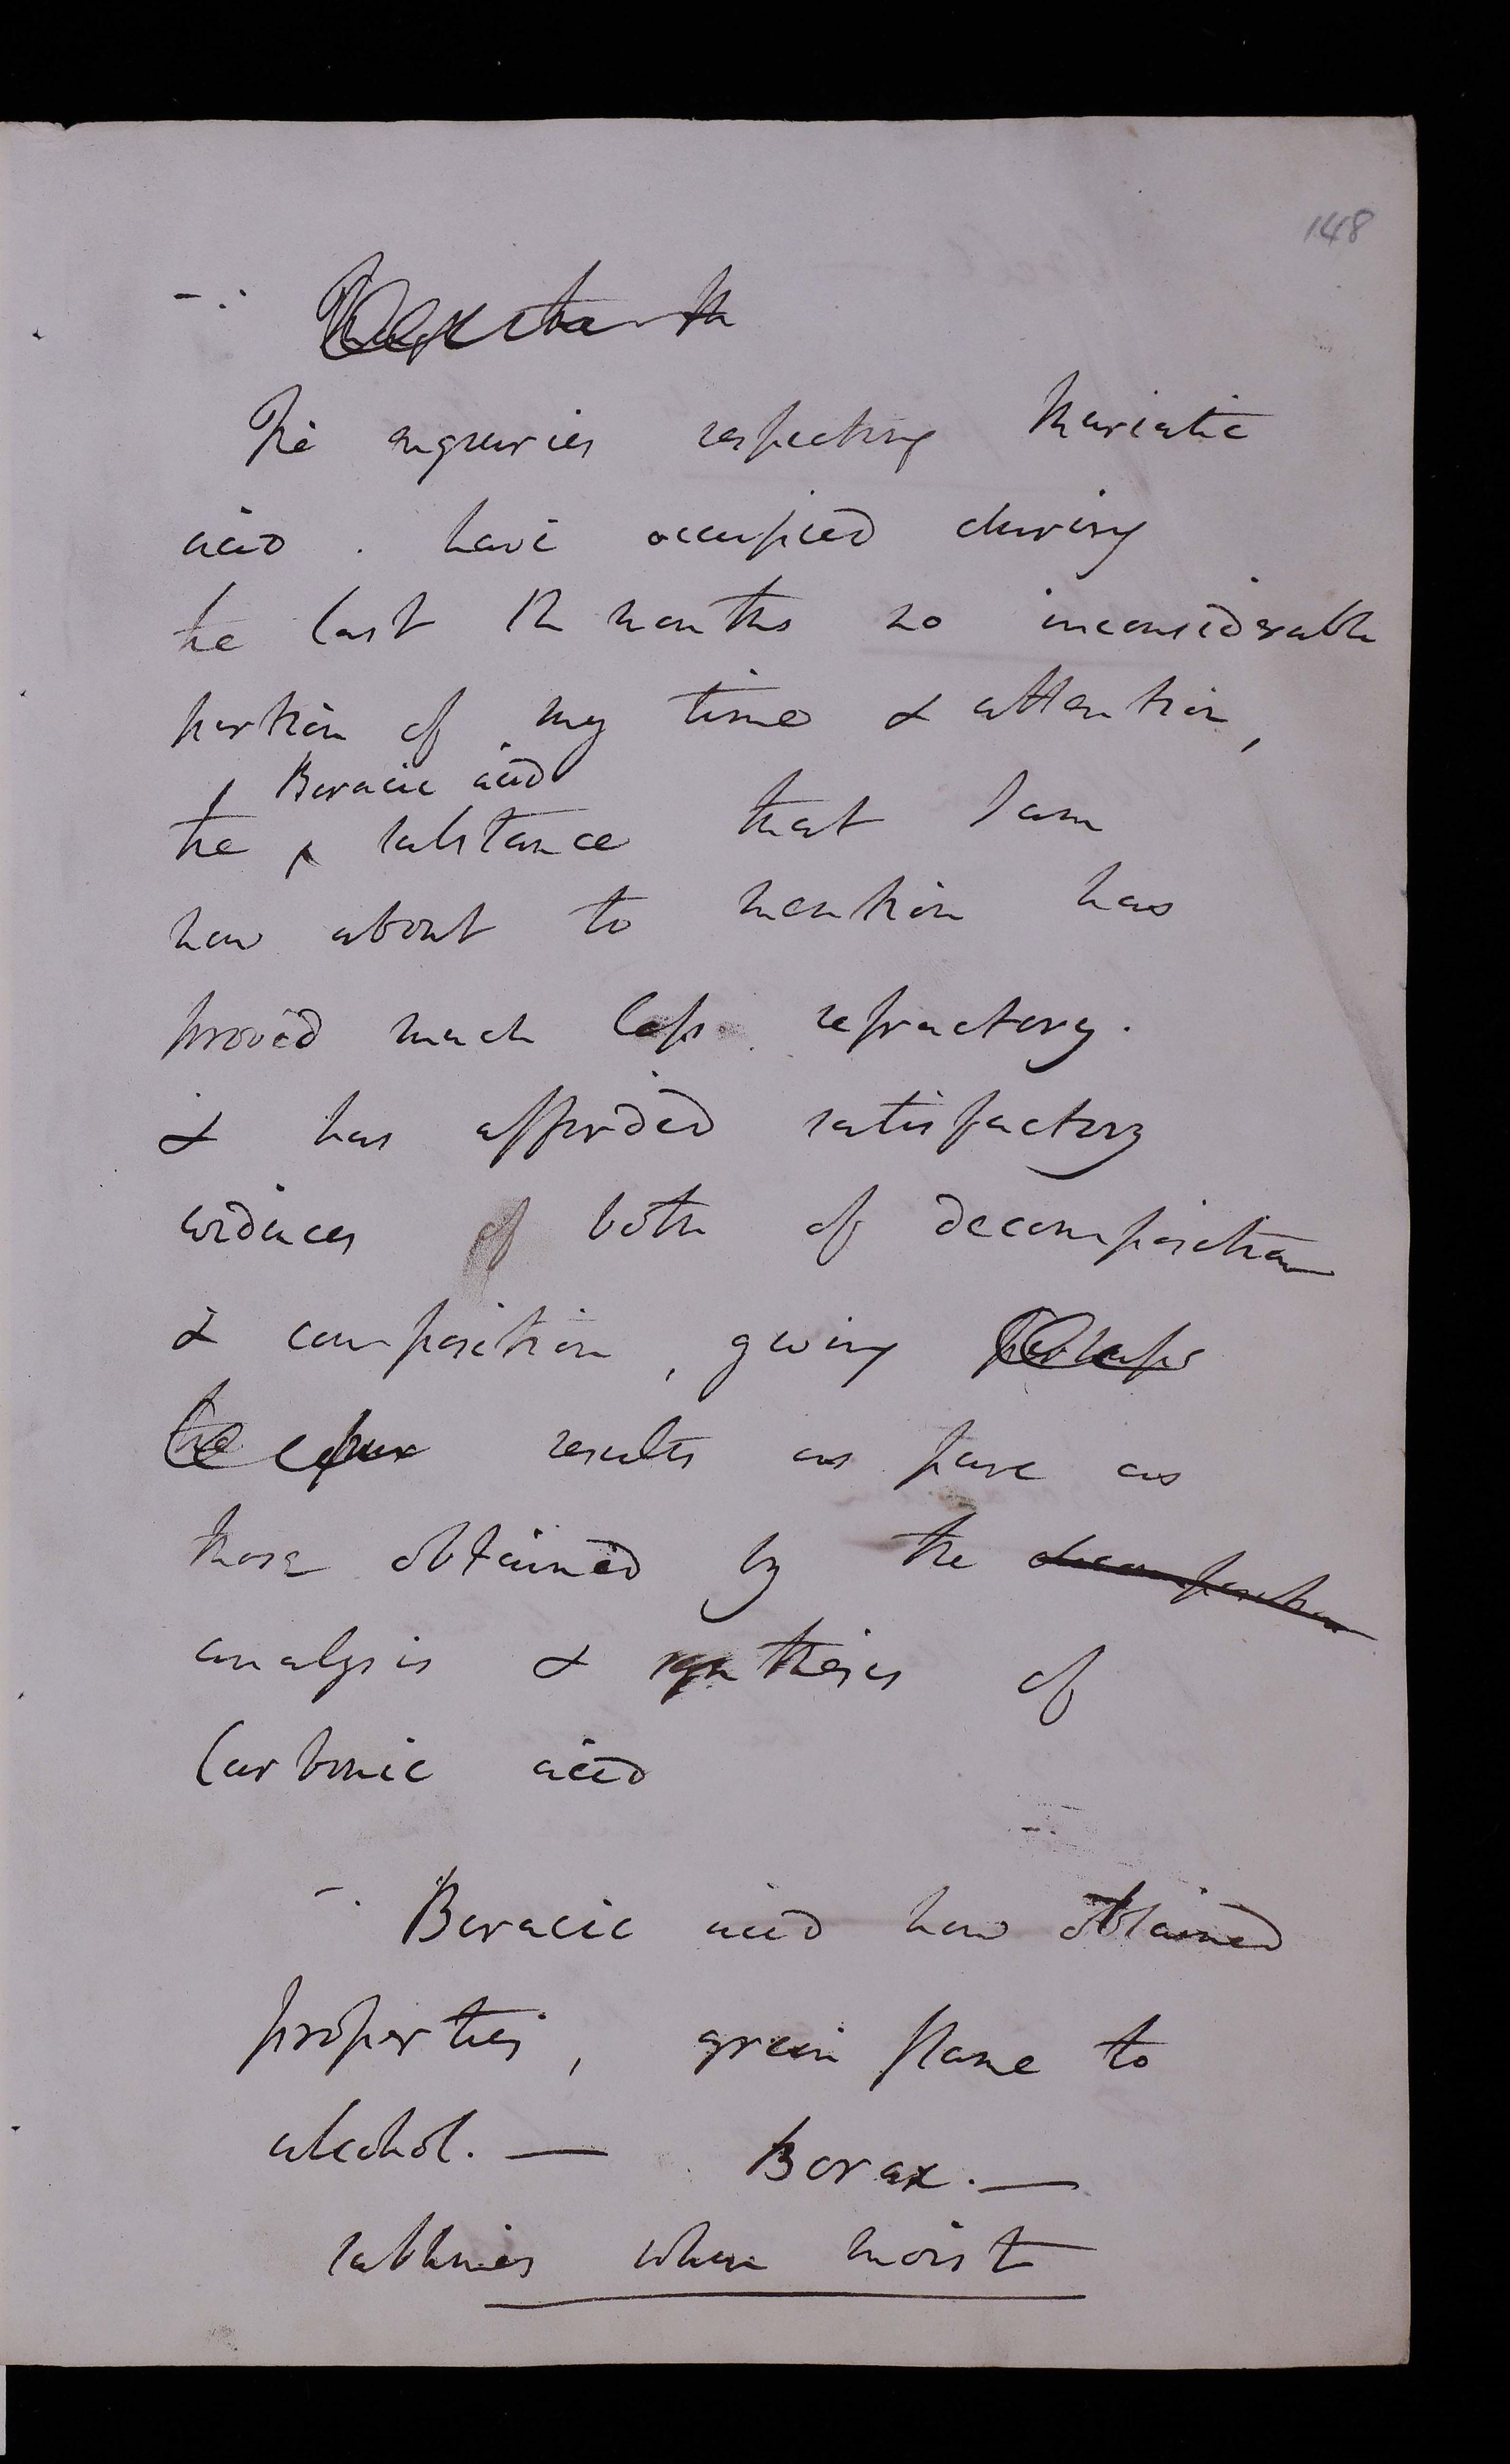 148
The enquiries respecting Muriatic
acid. have occupied during
the last 12 months no inconsiderable
portion of my time & attention,
Boracic acid
the substance that I am
now about to mention has
proved much less refractory.
& has afforded satisfactory
evidences of both of decomposition
& composition, giving perhaps
the results as pure as
those obtained by the decomposition
analysis & synthesis of
Carbonic acid
-. Boracic acid how obtained
properties, green flame to
alcohol. — Borax. —
sublimes when moist